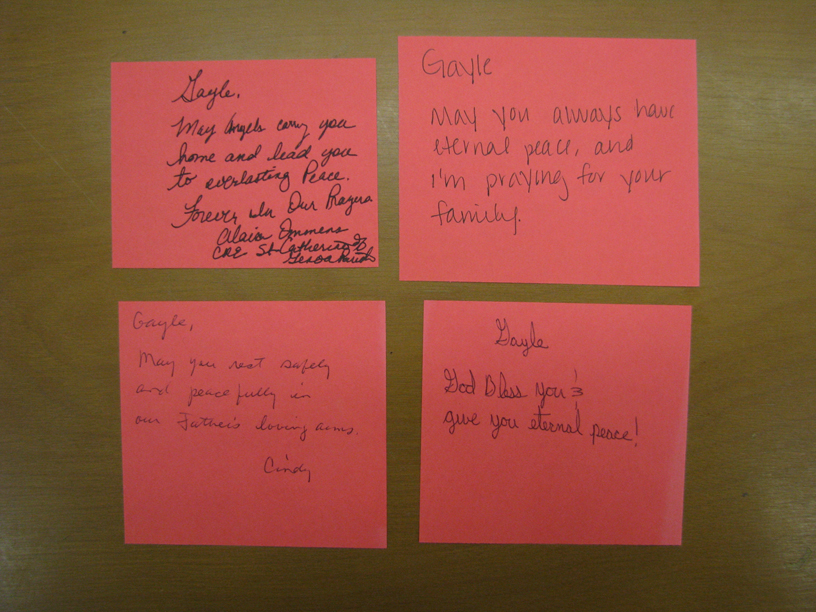 Gayle,
May Angels carry you
home and lead you
to everlasting Peace.
Forever In Our Prayers
Ommens
CRE St. Catherine of
Genoa Parish
Gayle
May you always have
eternal peace, and
I'm praying for your
family.
Gayle,
May you rest safely
and peacefully in
our Father's loving arms.
Cindy
Gayle
God Bless You &
give you eternal peace!